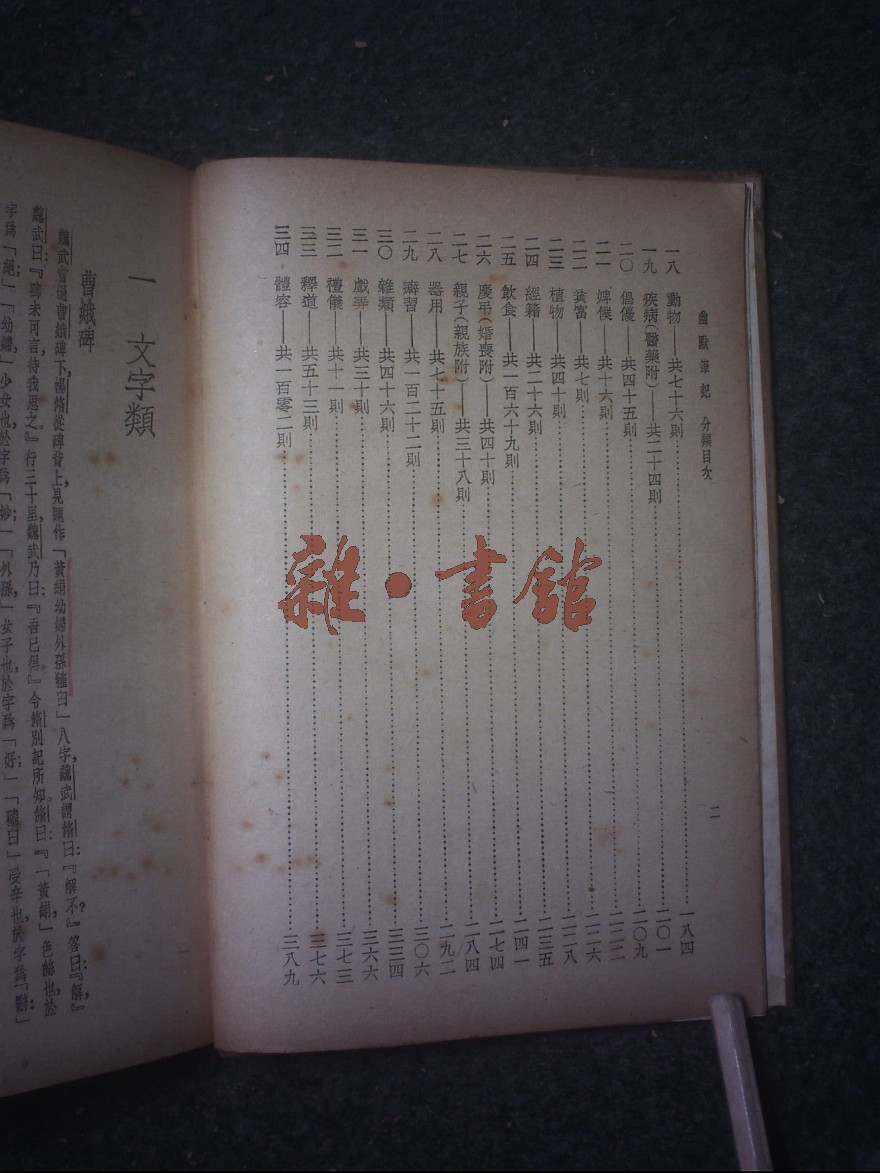 幽默筆記 分類目次
二
一八 動物——共七十六則……一八四
一九 疾病(醫藥附)——共二十四則……二〇一
二〇 倡優——共四十五則……二〇九
二一 婢僕——共十六則……二二二
二二 貧富——共七則……二二六
二三 植物——共四十則……二二八
二四 經籍——共二十六則……二三五
二五 飲食——共一百六十九則……二四一
二六 慶弔(婚喪附)——共四十則……二七四
二七 親子(親族附)——共三十八則……二八四
二八 器用——共七十五則……二九二
二九 癖習——共一百二十二則……三〇六
三〇 雜類——共四十六則……三三四
三一 戲弄——共三十則……三六六
三二 禮儀——共十一則……三七三
三三 釋道——共五十三則……三七六
三四 體容——共一百零二則……三八九
雜·書館
一 文字類
曹娥碑
魏武嘗過曹娥碑下,楊脩從碑背上,見題作「黃絹幼婦外孫韲臼」八字,魏武謂脩曰:『解不?』答曰:『解,』
魏武曰:『卿未可言待我思之,』行三十里,魏武乃曰:『吾已得。』令脩別記所知,脩曰:『「黃絹,」色絲也,於
字爲「絕;」「幼婦,」少女也,於字爲「妙;」「外孫,」女子也,於字爲「好;」「韲臼,」受辛也,於字爲「辭:」